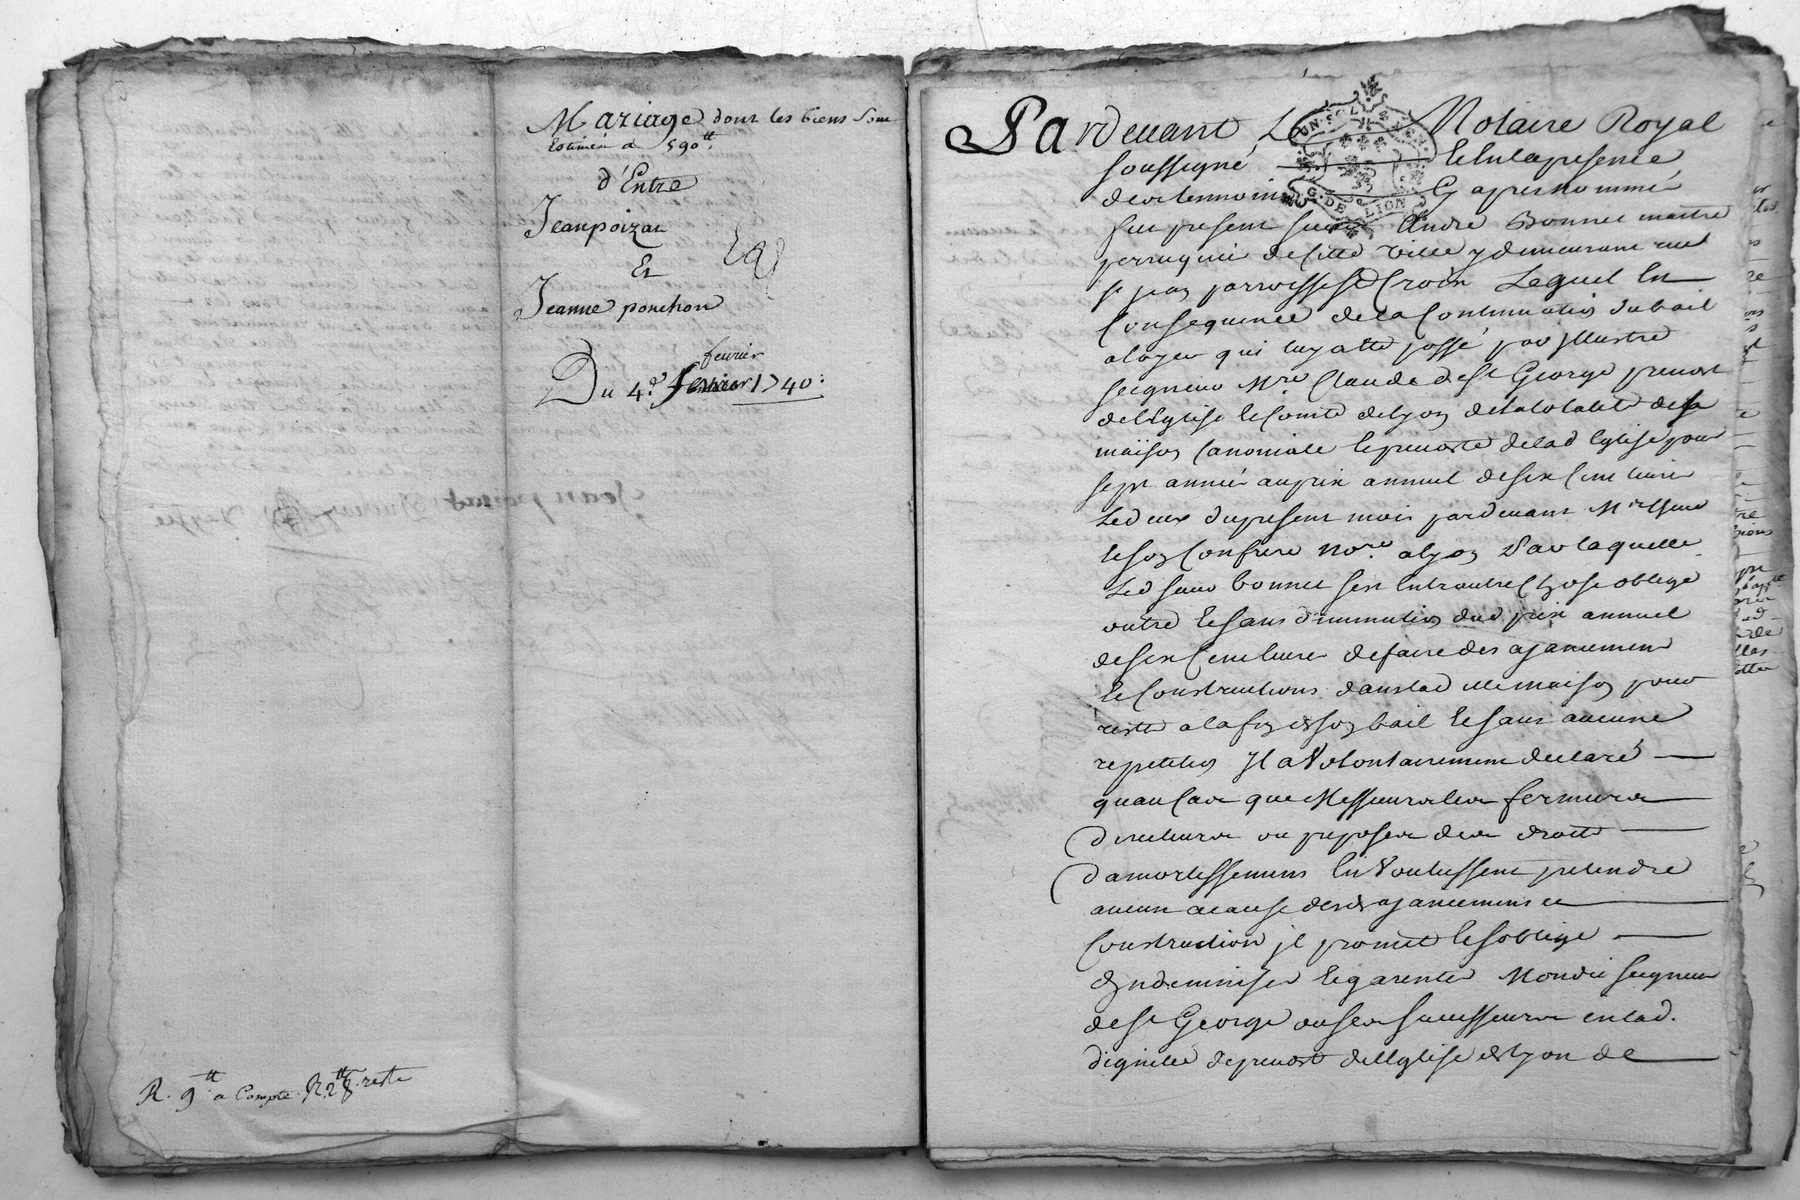 Mariage dont les biens sont
Estimés a 590tt
d'Entre
Jean poizat
Et
Jeanne ponchon
fevrier
Du 4e. 1740:
R. 9tt a Compte. R. 2tt reste
UN SOL
G. DE LION
Pardevant Le Notaire Royal
soussigné Et En la presence
des temoins Cy apres nommés
fut present sieur André Bonnet maitre
perruquier de cette ville y demeurant rue
st jean parroisse ste Croix Lequel En
Consequence de la Continuation du bail
a loyer qui luy a été passé par jllustre
seigneur Mre. Claude de st George prevost
de l'Eglise Et Comte de lyon de la totalité de sa
maison Canoniale Et prevosté de lad Eglise pour
sept années au prix annuel de six Cent livres
Le deux du present mois pardevant
Et son Confrere Nore. a lyon Par laquelle
Led sieur bonnet s'est Entr'autre Chose obligé
outre Et sans diminution dud prix annuel
de six Cent livres de faire des ajancemens
Et Constructions dans lad maison pour
rester a la fin de son bail Et sans aucune
repetition Jl a Volontairement declaré
qu'au Cas que Messieurs les fermiers
Directeurs ou preposés des droits
d'amortissemens En Voulussent pretendre
aucun a cause desd ajancemens et
Construction jl promet Et s'oblige
d'jndemniser Et garentir Mondit seigneur
de st George ou ses successeurs en lad.
dignitée de prevost de l'Eglise de lyon de